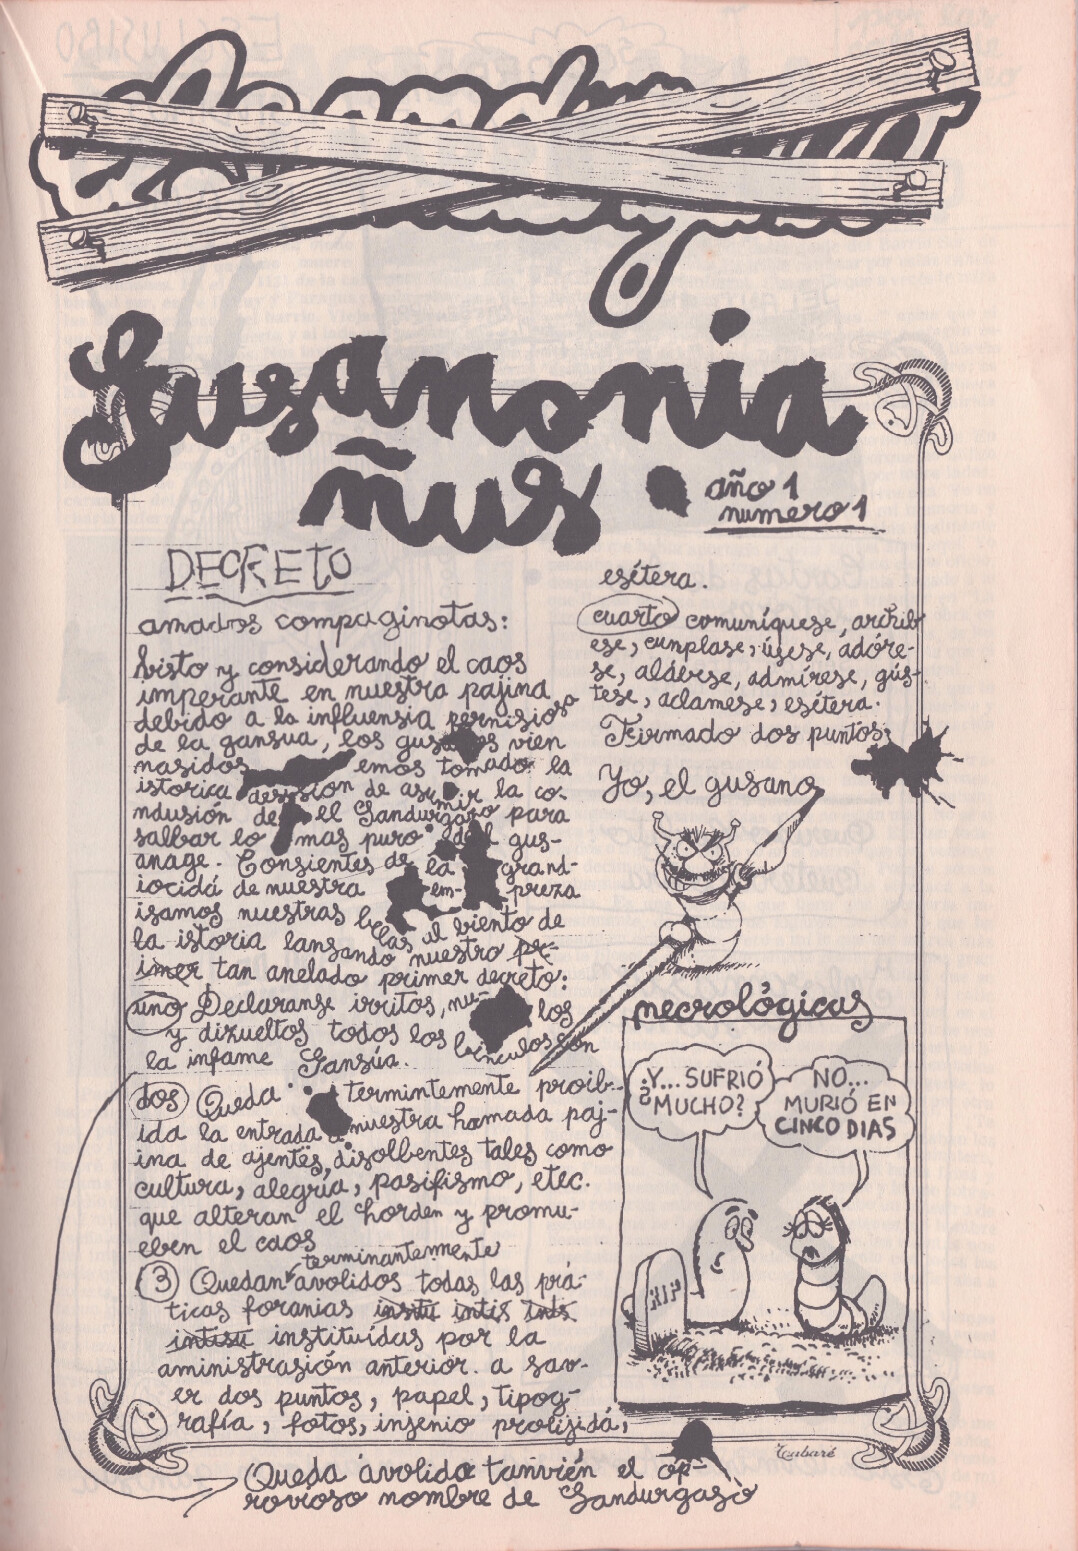 Gusanonia
ñus
año 1
numero 1
DECRETO
amados compaginotas:
bisto y considerando el caos
imperante en nuestra pajina
debido a la influensia pernisiosa
de la gansua, los gusanos vien
nasidos emos tomado la
istorica desision de asumir la co-
ndusión de el Sandurgaso para
salbar lo mas puro del gus-
anage. Consientes de la grand-
iocidá de nuestra em- preza
isamos nuestras belas al biento de
la istoria lansando nuestro pr-
imer tan anelado primer decreto:
uno Declaranse irritos, nu- los
y dizueltos todos los binculos con
la infame Gansúa.
dos Queda termintemente proib-
ida la entrada a nuestra hamada paj-
ina de ajentes disolbentes tales como
cultura, alegría, pasifismo, etec.
que alteran el horden y promu-
eben el caos
terminantemente
3 Quedan avolidos todas las prá-
ticas foranias insitu intis ints
intisu instituídas por la
aministrasión anterior. a sav-
er dos puntos, papel, tipog-
rafía, fotos, injenio prolijidá,
esétera.
cuarto comuníquese, archib
ese, cunplase, úsese, adóre-
se, alábese, admírese, gús-
tese, aclamese, esétera.
Firmado dos puntos:
Yo, el gusano
necrológicas
¿Y... SUFRIÓ
MUCHO?
NO...
MURIÓ EN
CINCO DIAS
RIP
Tabaré
Queda avolido tanvién el op-
rovioso nombre de Sandurgaso